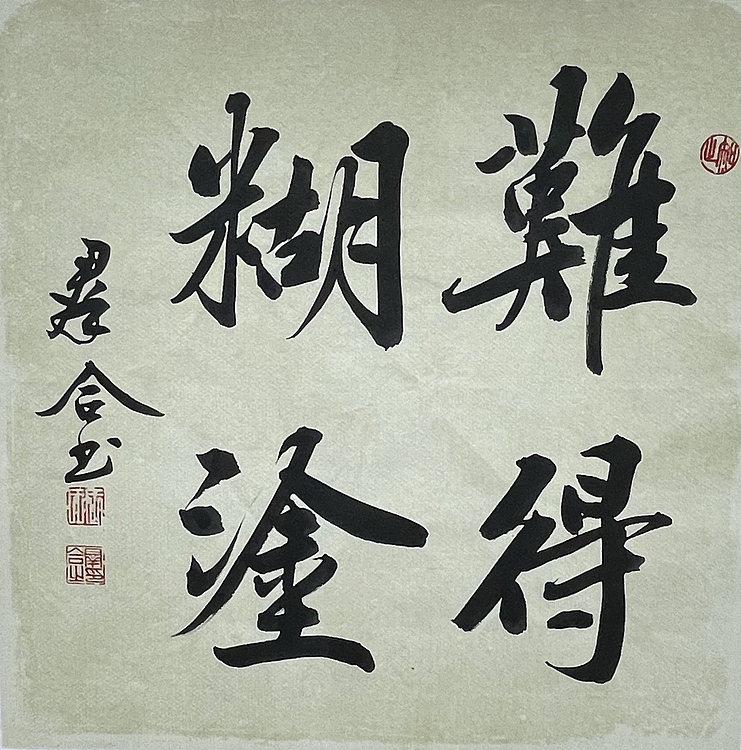 難得
糊塗
羣合书